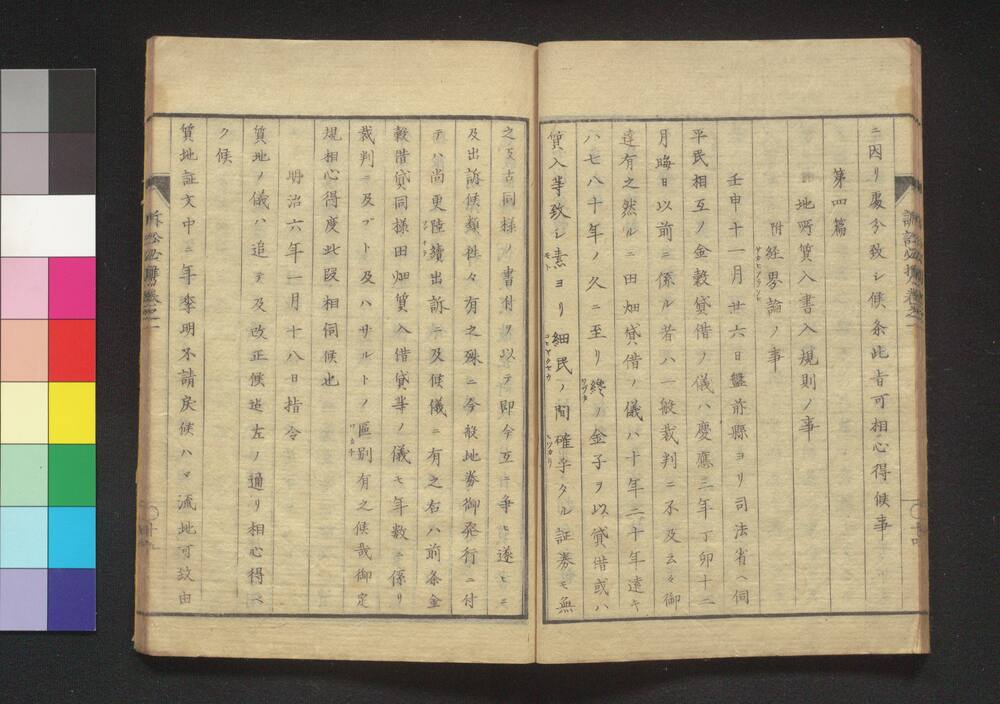 ニ因リ處分致シ候条此旨可相心得候事
第四篇
地所質入書入規則ノ事
附経界論ノ事
サカヒアラソヒ
壬申十一月廿六日盤前縣ヨリ司法省ヘ伺
平民相互ノ金穀貸借ノ儀ハ慶應三年丁卯十二
月晦日以前ニ係ル者ハ一般裁判ニ不及云々御
達有之然ルニ田畑貸借ノ儀ハ十年二十年遠キ
ハ七八十年ノ久ニ至リ纔ノ金子ヲ以貸借或ハ
ワヅカ
質入等致シ素ヨリ細民ノ間確乎タル証券モ無
モト
之反古同様ノ書付ヲ以テ即今互ニ争ヒ遂ヒニ
及出訴候類往々有之殊ニ今般地券御発行ニ付
テハ尚更陸續出訴ニ及候儀ニ有之右ハ前条金
穀借貸同様田畑質入借貸等ノ儀モ年数ニ係リ
裁判ニ及ブト及ハサルトノ區別有之候哉御定
規相心得度此段相伺候也
明治六年一月十八日指令
質地ノ儀ハ追テ及改正候迄左ノ通リ相心得ヘ
ク候
質地証文中ニ年季明不請戻候ハヾ流地可致由